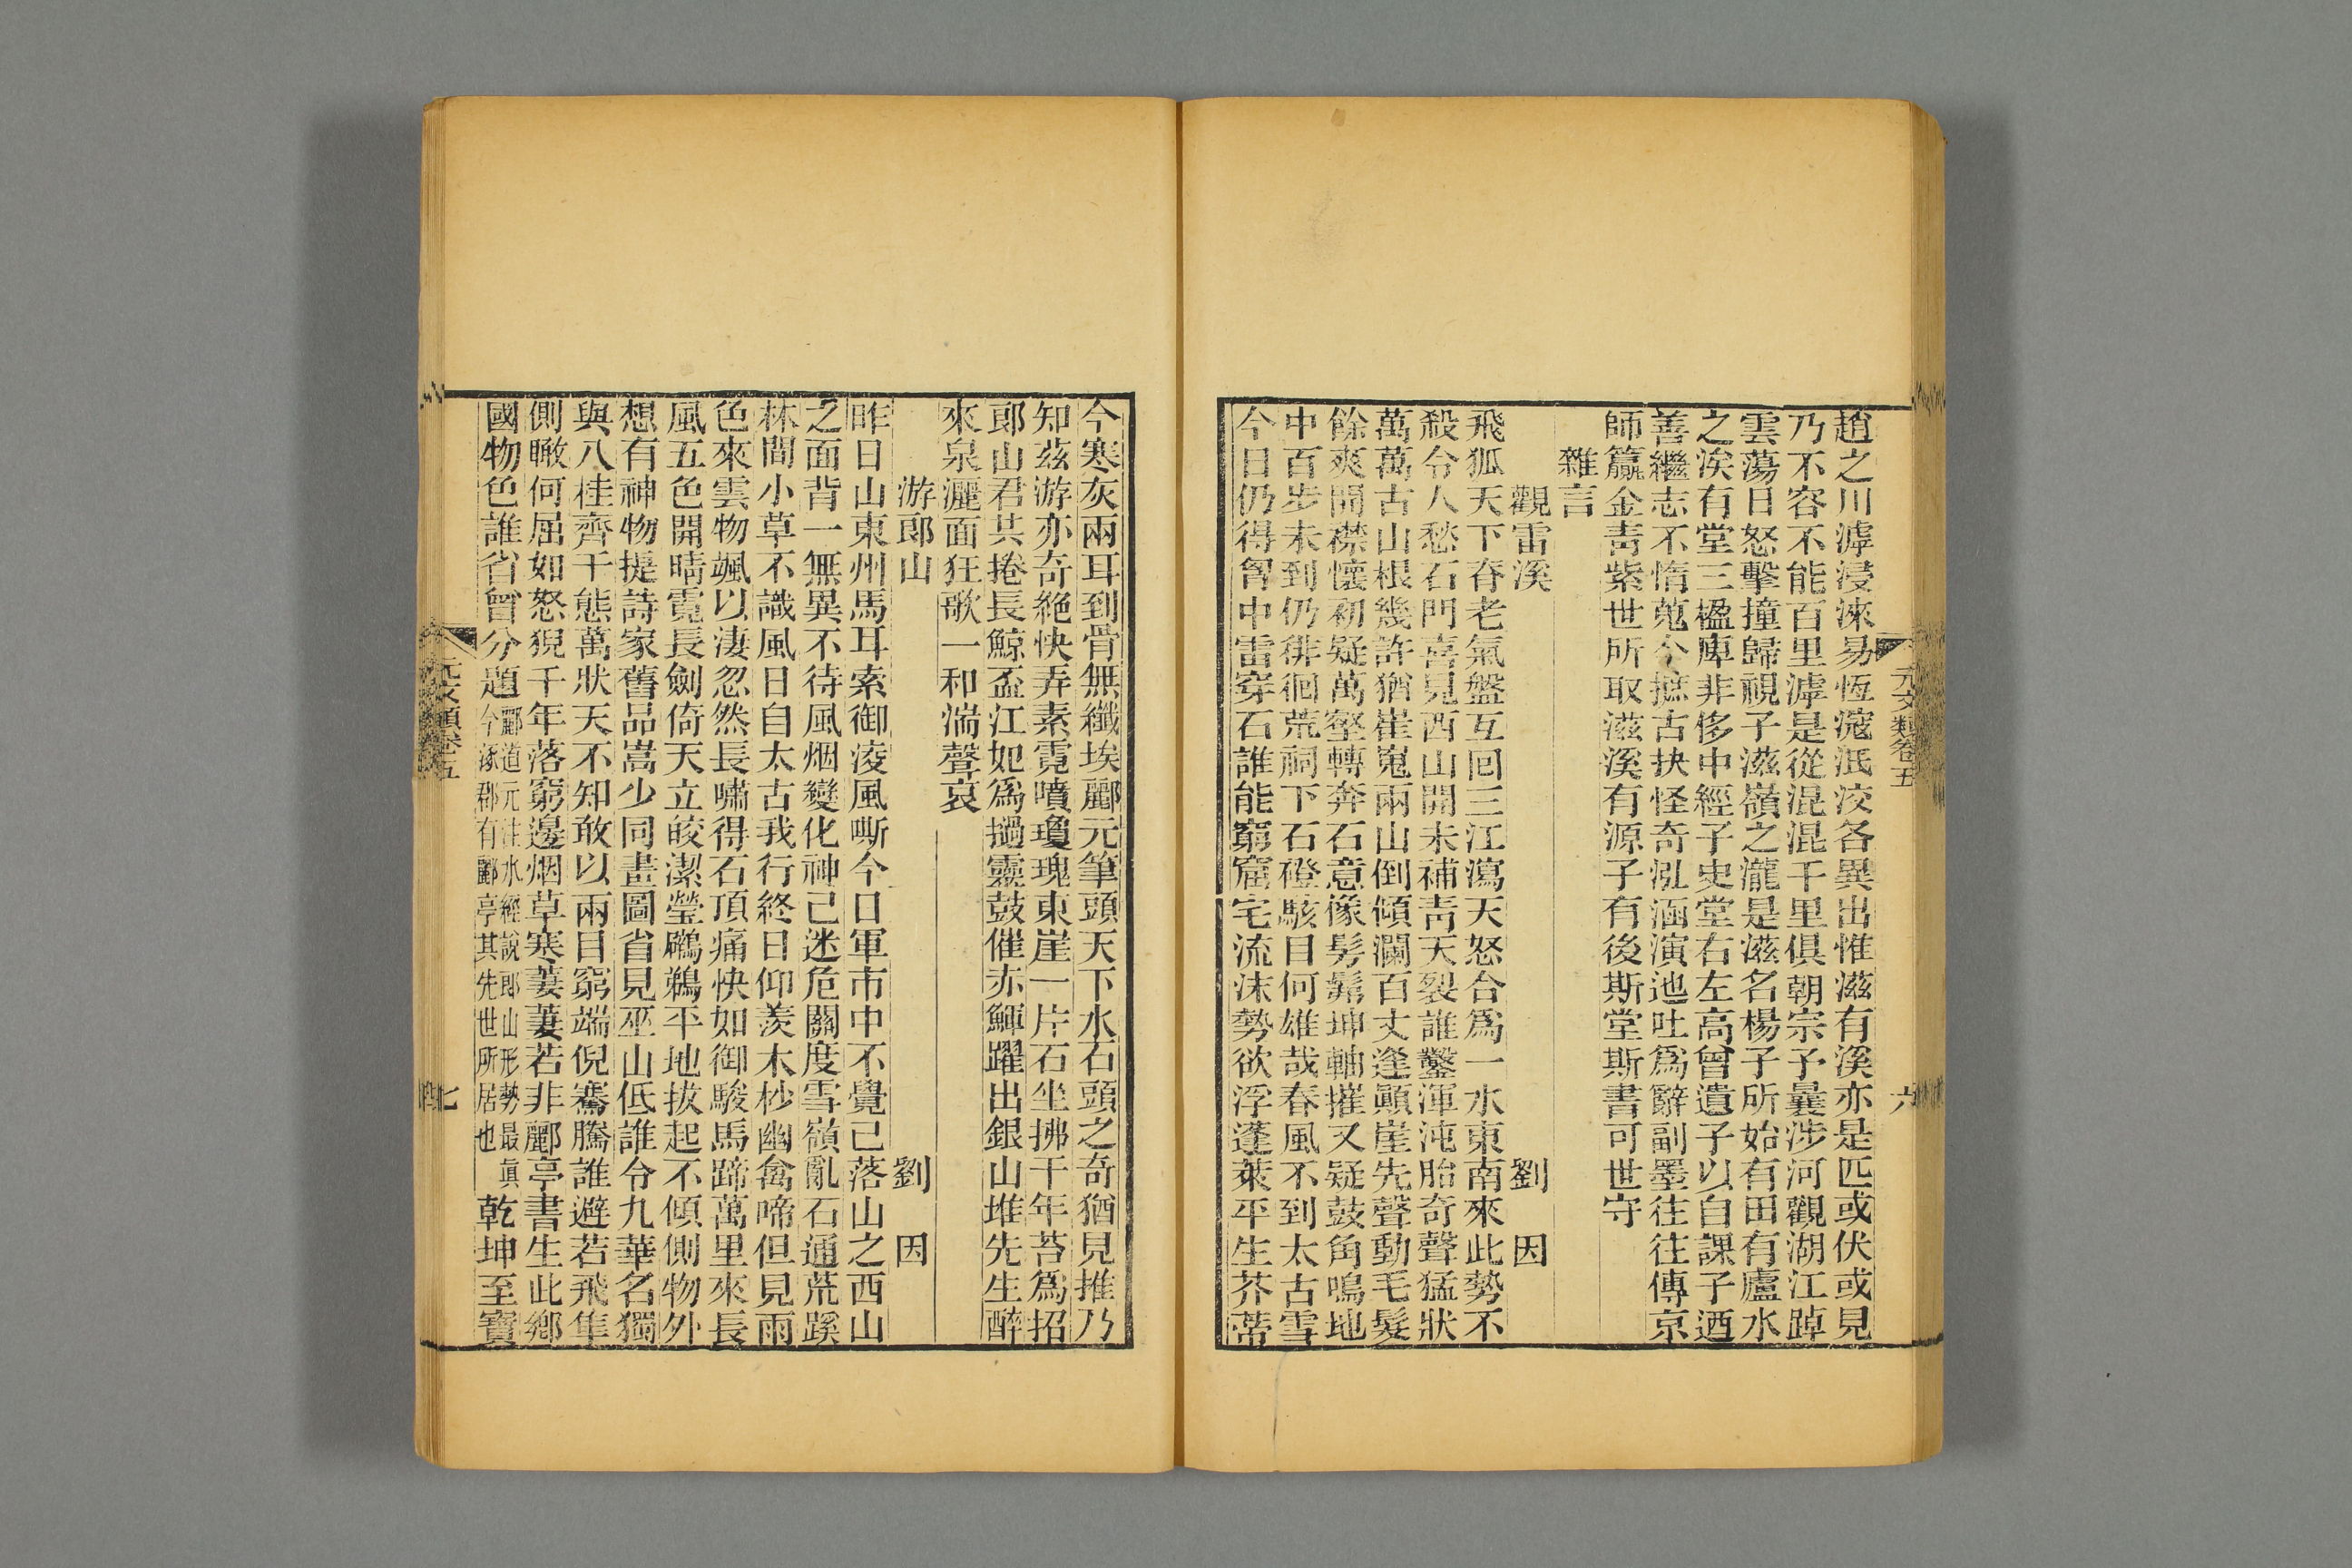 元文類卷五
六
趙之川滹浸淶易恆滱泜洨各異出惟滋有溪亦是匹或伏或見
乃不容不能百里滹是從混混千里俱朝宗予曩涉河觀湖江踔
雲蕩日怒擊撞歸視子滋嶺之瀧是滋名楊子所始有田有廬水
之涘有堂三楹庳非侈中經子史堂右左高曾遺子以自課子迺
善繼志不惰蒐今摭古抉怪奇泓涵演迆吐爲辭副墨往往傳京
師籯金靑紫世所取滋溪有源子有後斯堂斯書可世守
雜言
觀雷溪 劉因
飛狐天下脊老氣盤互回三江瀉天怒合爲一水東南來此勢不
殺令人愁石門喜見西山開未補靑天裂誰鑿渾沌胎奇聲猛狀
萬萬古山根幾許猶崔嵬兩山倒傾瀾百丈逢顚崖先聲動毛髮
餘爽開襟懷初疑萬壑轉奔石意像髣髴坤軸摧又疑鼓角鳴地
中百步未到仍徘徊荒祠下石磴駭目何雄哉春風不到太古雪
今日仍得胷中雷穿石誰能窮窟宅流沫勢欲浮蓬萊平生芥蔕
今寒灰兩耳到骨無纖埃酈元筆頭天下水石頭之奇猶見推乃
知茲游亦奇絶快弄素霓噴瓊瑰東崖一片石坐拂千年苔爲招
郞山君共捲長鯨盃江妃爲撾靈鼓催赤鯶躍出銀山堆先生醉
來泉灑面狂歌一和湍聲哀
游郞山 劉因
昨日山東州馬耳索御淩風嘶今日軍市中不覺已落山之西山
之面背一無異不待風烟變化神已迷危關度雪嶺亂石通荒蹊
林間小草不識風日自太古我行終日仰羨木杪幽禽啼但見雨
色來雲物颯以淒忽然長嘯得石頂痛快如御駿馬蹄萬里來長
風五色開晴霓長劍倚天立皎潔瑩鸊鵜平地拔起不傾側物外
想有神物提詩家舊品嵩少同畫圖省見巫山低誰令九華名獨
與八桂齊千態萬狀天不知敢以兩目窮端倪騫騰誰避若飛隼
側瞰何屈如怒猊千年落窮邊烟草寒萋萋若非酈亭書生此鄉
國物色誰省曾分題酈道元注水經說郞山形勢最眞今涿郡有酈亭其先世所居也乾坤至寶
元文類卷五
七